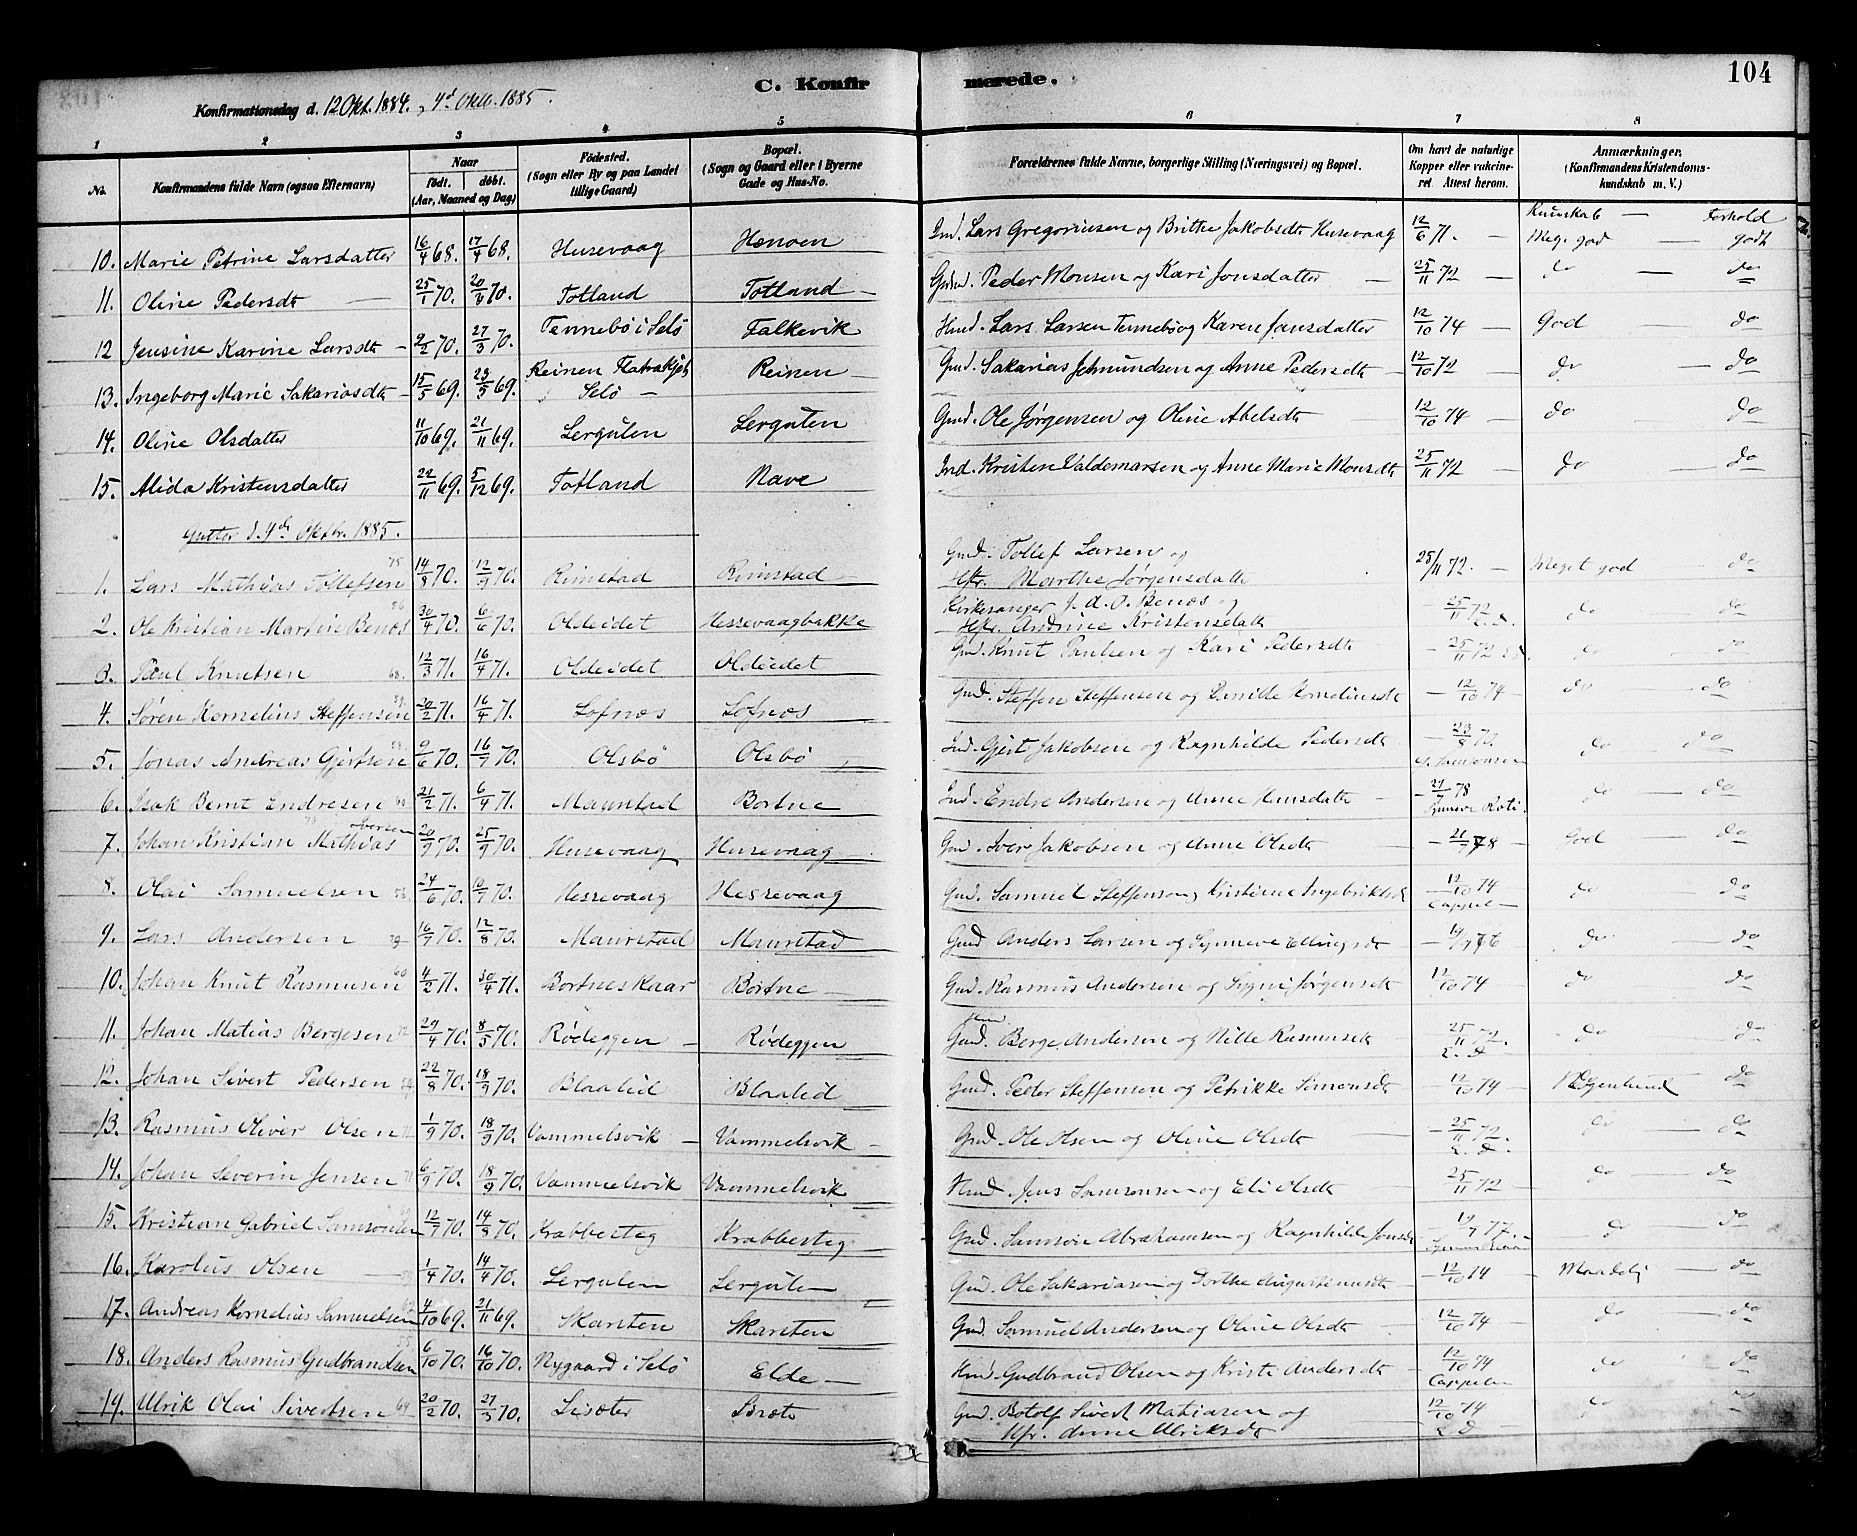 C. Konfirmerede. 104
Konfirmationsdag d. 12 Okt. 1884. , 4d Oktb. 1885.
1 2 3 4 5 6 7 8
No. Konfirmandens fulde Navn (ogsaa Efternavn) Naar födt. döbt. (Aar, Maaned og Dag) Födested. (Sogn eller By og paa Landet tillige Gaard) Bopæl. (Sogn og Gaard eller i Byerne Gade og Hus-No. Forældrenes fulde Navne, borgerlige Stilling (Næringsvei) og Bopæl. Om havt de naturlige Kopper eller vakcineret Attest herom. Anmærkninger, (Konfirmandens Kristendomskundskab m. V.)
Kundskab — Forhold
10. Marie Petrine Larsdatter 16/4 68. 17/4 68. Husevaag Henøen Ind. Lars Gregoriusen og Brithe Jakobsdt Husevaag 12/6 71. — Meg. god — godt
11. Oline Pedersdt — 25/1 70. 20/3 70. Totland Totland — Gaardm. Peder Monsen og Kari Jonsdatter — 25/11 72 — do — do
12 Jensine Karine Larsdt — 2/2 70. 27/3 70. Tennebö i Selö Falkevik Hmd. Lars Larsen Tennebö og Karen Jonsdatter 12/10 74 — God — do
13. Ingeborg Marie Sakariasdt — 15/5 69. 23/5 69. Reinen Selö — Reinen — Gmd. Sakarias Jetmundsen og Anne Pedersdt — 12/10 72 — do — do
14. Oline Olsdatter 11/10 69. 21/11 69. Lergulen Lergulen Gmd. Ole Jørgensen og Oline Abelsdt 12/10 74 — do do
15. Alida Kristensdatter 22/11 69. 5/12 69. Totland Nave Ind. Kristen Valdemarsen og Anne Marie Monsdt 25/11 72 — do — do
Gutter d. 4de Oktbr. 1885.
1. Lars Mathias Tollefsen 75 14/8 70. 12/9 70. Rimstad Rimstad — Gmd. Tollef Larsen og
Hr. Marthe Jørgensdatt 25/11 72. — Meget god — do
2. Ole Kristian Martin Benæs 56 30/4 70. 6/6 70. Oldeidet Hessevaagbakke Kirkesanger J. d. O. Benæs og
Hr. Andrine Kristensdatt — 25/11 72 do do
3. Paul Knutsen 68. 12/3 71. 16/4 71. Oldeidet Oldeidet Gmd. Knut Paulsen og Kari Pedersdt — 25/11 72 do do
4. Søren Kornelius Steffensen 20/2 71. 16/4 71. Lofnæs Lofnæs Gmd. Steffen Steffensen og Pernille Korneliusdt — 12/10 74 — do — do
5. Jonas Andreas Gjertsen 9/6 70. 16/9 70. Olsbö Olsbö Ind. Gjert Jakobsen og Ragnhilde Pedersdt — 23/8 70. do do
6. Isak Bernt Endresen 21/2 71. 6/4 71. Maurstad Bortne Ind. Endre Andersen og Anne Hansdatt — 27/7 78 do — do
7. Johan Kristian Mathias Iversen 20/9 70. 25/9 70. Husevaag Husevaag Gmd. Iver Jakobsen og Anne Olsdt — 21/9 78 God — do
8. Olai Samuelsen 24/6 70. 10/7 70. Hessevaag Hessevaag Gmd. Samuel Steffenson, Kristine Ingebriktsdt 12/10 74 Cappelen do — do
9. Lars Andersen 16/7 70. 12/8 70. Maurstad Maurstad Gmd Anders Larsen og Synneve Ellingsdt — 14/9 76 do — do
10. Johan Knut Rasmusen 60 4/2 71. 30/4 71. Bortneskaar Bortne Gmd. Rasmus Andersen og Signe Jørgensdt 12/10 74 do do
11. Johan Matias Bergesen 29/4 70. 8/5 70. Rødeggen — Rødeggen Gmd. Berge Andersen og Nille Rasmusdt 25/11 72. do do
12. Johan Sivert Pedersen 22/8 70. 18/9 70. Blaalid Blaalid Gmd. Peder Steffensen og Petrikke Simonsdt — 12/10 74 — do
13. Rasmus Oliver Olsen 1/9 70. 18/9 70. Vammelsvik — Vammelsvik — Gmd. Ole Olsen og Oline Olsdt — 25/11 72. do — do
14. Johan Severin Jensen 6/9 70. 18/9 70. Vammelsvik Vammelsvik Hmd Jens Samsonsen og Eli Olsdt 25/11 72 do — do
15. Kristian Gabriel Samsonsen 12/7 70. 14/8 70. Krabbesteg Krabbesteg Gmd. Samson Abrahamsen og Ragnhilde Jonsdt 77. — do — do
16. Karolus Olsen 1/4 70. 14/4 70. Lergulen Lergulen Gmd. Ole Sakariasen og Dorthe Augustinusdt — 12/10 74 — Maadelig — do
17. Andreas Kornelius Samuelsen 4/10 69. 21/11 69. Skarsten Skarsten Gmd. Samuel Andersen og Oline Olsdt 12/10 74 do — do
18. Anders Rasmus Gudbrandsen 6/10 70. 16/10 70. Nygaard i Selö Elde — Hmd. Gudbrand Olsen og Kristi Andersdt — 12/10 74 Cappelen do — do
19. Ulrik Olai Sivertsen 64 20/2 70. 27/3 70. Lisæter Bræto Gmd. Botolf Sivert Matiasen og
Hr. Anne Ulriksdt 12/10 74 do